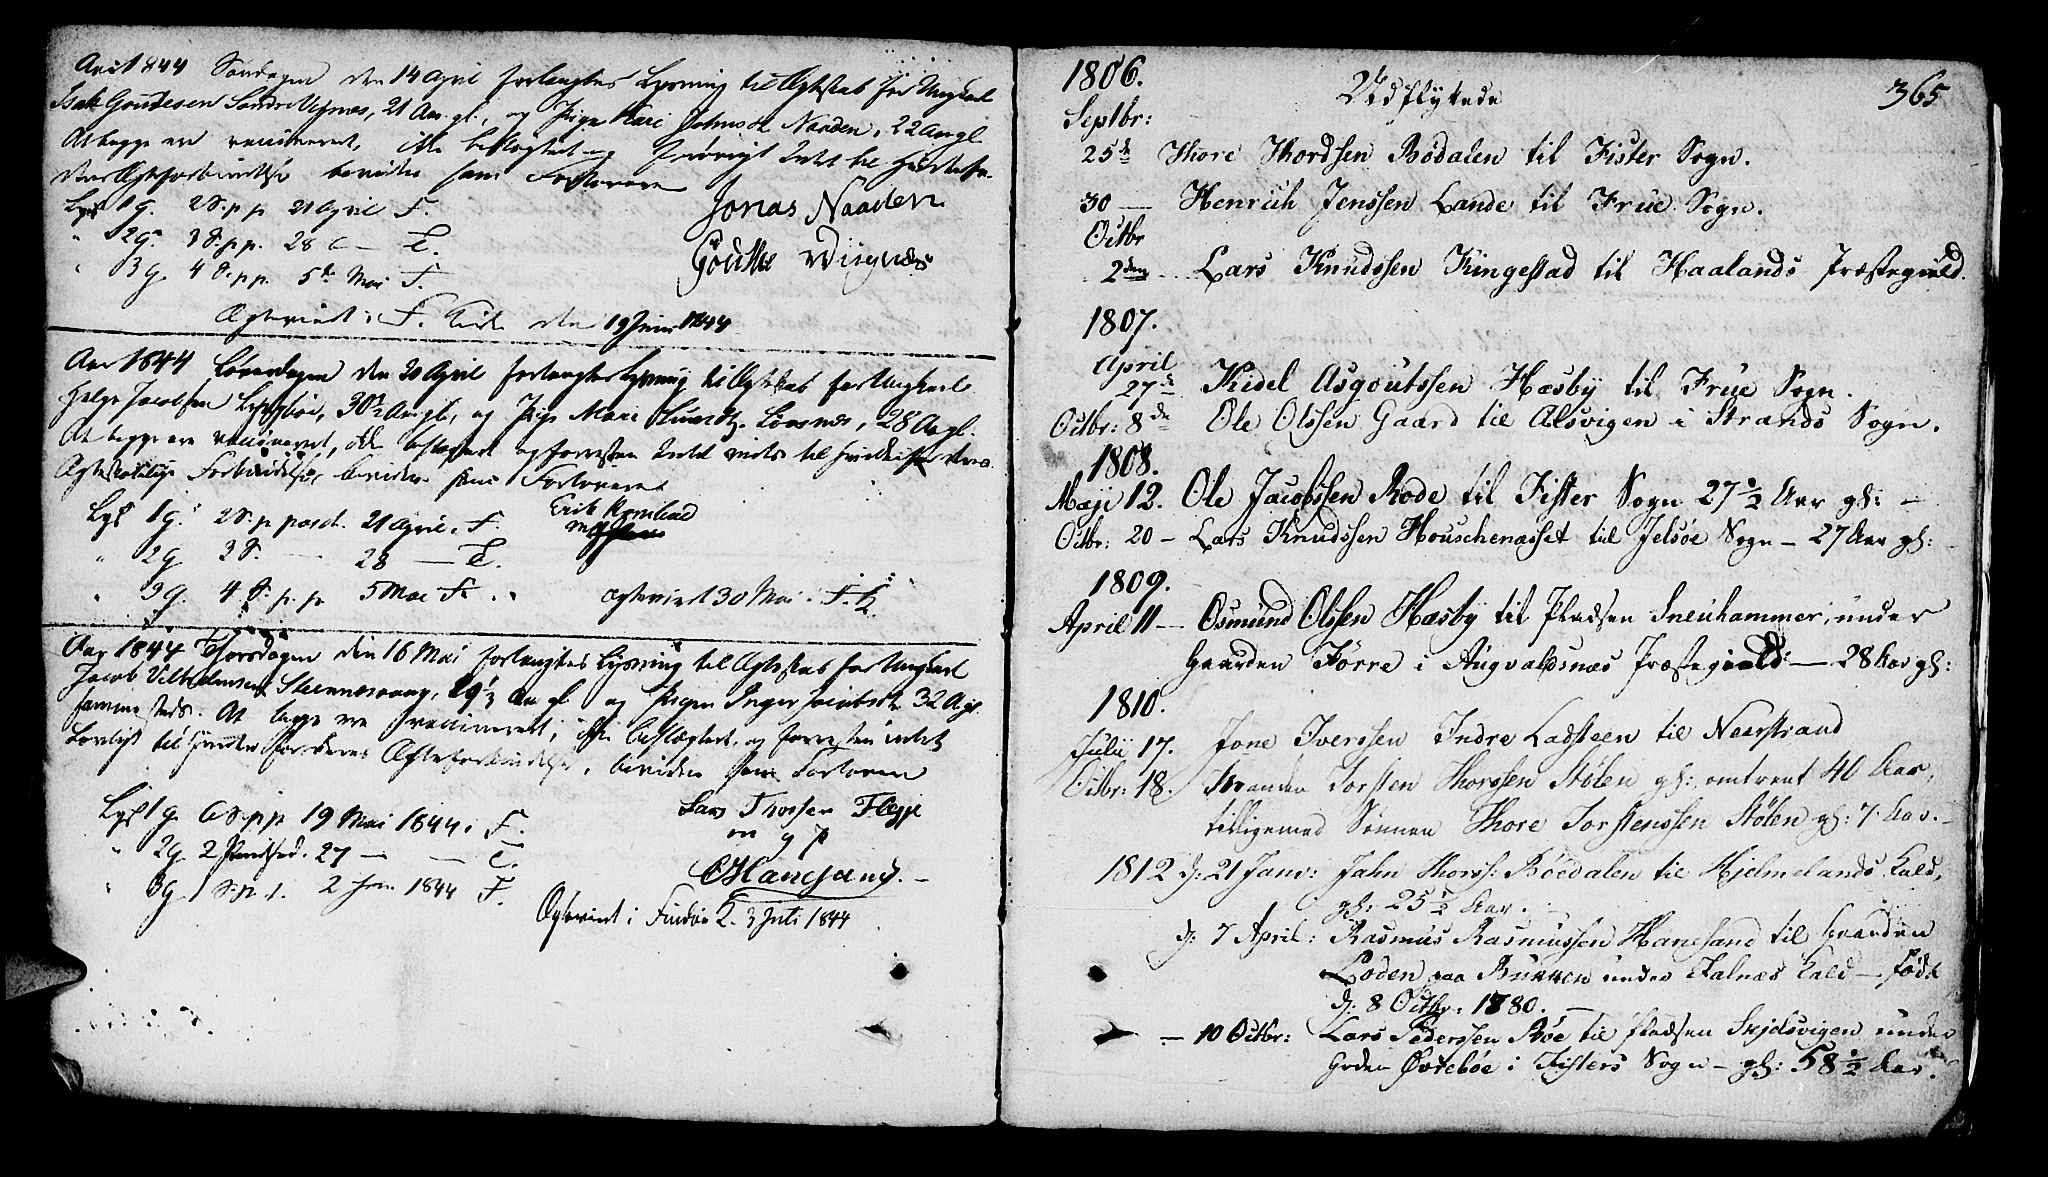 Aar 1844 Søndagen den 14 April forlangtes Lysning til Ægteskab for Ungkarl
Isak Goudesen Søndre Vignes, 21 Aar gl., og Pige Kari Johnsd. Naaden, 22 Aar gl
At begge ere vaccineret, ikke beslægtet og forøvrigt Intet til Hinder for
deres Ægteforbindelse bevidne som Forlovere
Lyst 1 g. 2 S. p p 21 April F. Jonas Naaden
" 2 g. 3 S. p p. 28 — T. Goutte Viignæs
" 3 g. 4 S. p p. 5te Mai F.
Ægteviet i F. Kirke den 19 Juni 1844
Aar 1844 Løverdagen den 20 April forlangtes Lysning til Ægteskab for Ungkarl
Helge Jacobsen 30½ Aar gl, og Pige Mari 28 Aar gl.
At begge ere vaccineret, ikke beslægtet og forresten Intet vides til Hinder for deres
Ægteskabelige Forbindelse, bevidne som Forlovere
Lyst 1 g. 2 S. p pasch. 21 April. F. Erik
" 2 g 3 S. — 28 — T.
" 3 g. 4 S. p. p 5 Mai F. Ægteviet 30 Mai. F. K
Aar 1844 Torsdagen den 16 Mai forlangtes Lysning til Ægteskab for Ungkarl
Jacob Vilhelmsen 29½ Aar gl og Pigen Inger Jacobsd. 32 A gl.
sammesteds. At begge ere vaccineret, ikke beslægtet, og forresten intet
Lovligt til Hinder for deres Ægteforbindelse, bevidne som Forlovere
Lyst 1 g. 6 S. p p 19 Mai 1844. F. Lars Thorsen Fleppe
" 2 g. 2 Pindsed. 27 — — T. m p p
" 3 g. 1 S. p. t. 2 Jun. 1844 F. O Hanesand. —
Ægteviet i Findøe K. 3 Juli 1844
365
1806. Udflyttede
Septbr:
25de Thore Thordsen Bødalen til Fister Sogn.
30 — Henrich Jenssen Lande til Frue Sogn.
Octbr
2den Lars Knudssen Kingestad til Haalands Præstegield.
1807.
April
27de Kidel Asgoutssen Hæsby til Frue Sogn.
Octbr: 8de Ole Olssen Gaard til Alsvigen i Strands Sogn.
1808.
Maji 12. Ole Jacobssen Rode til Fister Sogn 27½ Aar gl: —
Octbr: 20 — Lars Knudssen Houschenæsset til Jelsøe Sogn — 27 Aar gl:
1809.
April 11 — Osmund Olssen Hæsby til Pladsen Sneuhammer, under
GaardenFørre i Augvaldsnæs Præstegield: — 28 Aar gl:
1810.
Julii 17. Jone Iverssen Indre Ladsteen til Neerstrand
Octbr: 18. Torsten Thorssen Stølen gl: omtrent 40 Aar,
tilligemed Sønnen Thore Torstenssen Stølen gl: 7 Aar. —
1812 d: 21 Janv: Jahn Thorss: Bøedalen til Hjelmelands Kald,
gl: 25½ Aar. —
d: 7 April: Rasmus Rasmussen Hanesand til Gaarden
Loden paa Bukken under Falnæs Kald — født
d: 8 Octbr: 1780. —
— 10 Octbr: Lars Pederssen Bøe til Pladsen Skjelsvigen under
Garden Øvrebøe i Fisters Sogn — gl: 58½ Aar.